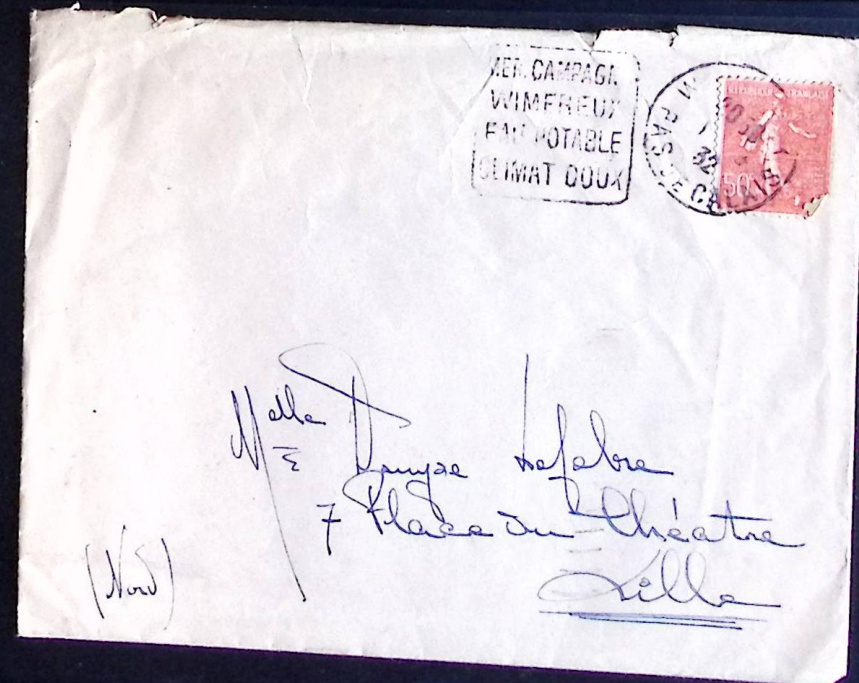 MER. CAMPAGN
WIMEREUX
EAU POTABLE
CLIMAT DOUX
M PAS DE CALAIS
32
REPUBLIQUE FRANÇAISE
50
Melle Denyse Lefebre
7 Place du Théatre
Lille
(Nord)